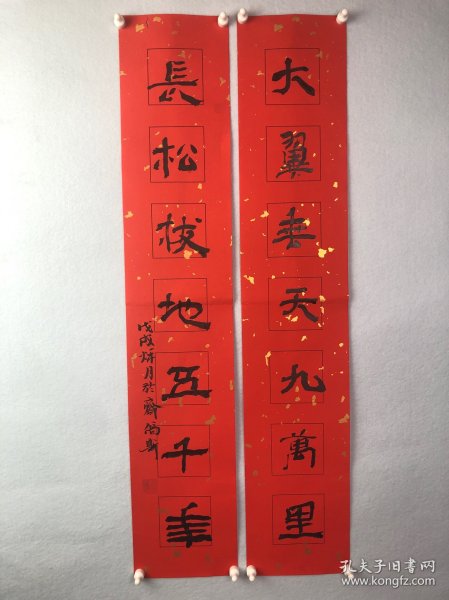 大翼垂天九萬里
長松拔地五千年
戊戌
月於齊
孔夫子旧书网
www.kongfz.com